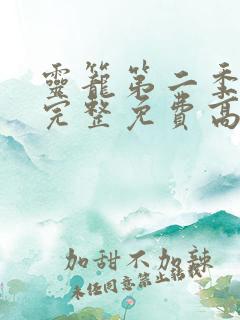 靈籠第二季
完整免費高
加甜不加辣
未经同意禁止转载